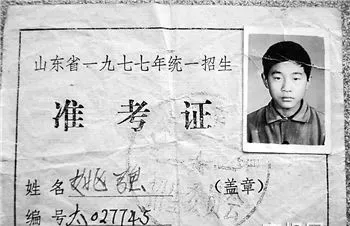 山东省一九七七年统一招生
准考证
姓名 姚强 (盖章)
编号 太027745